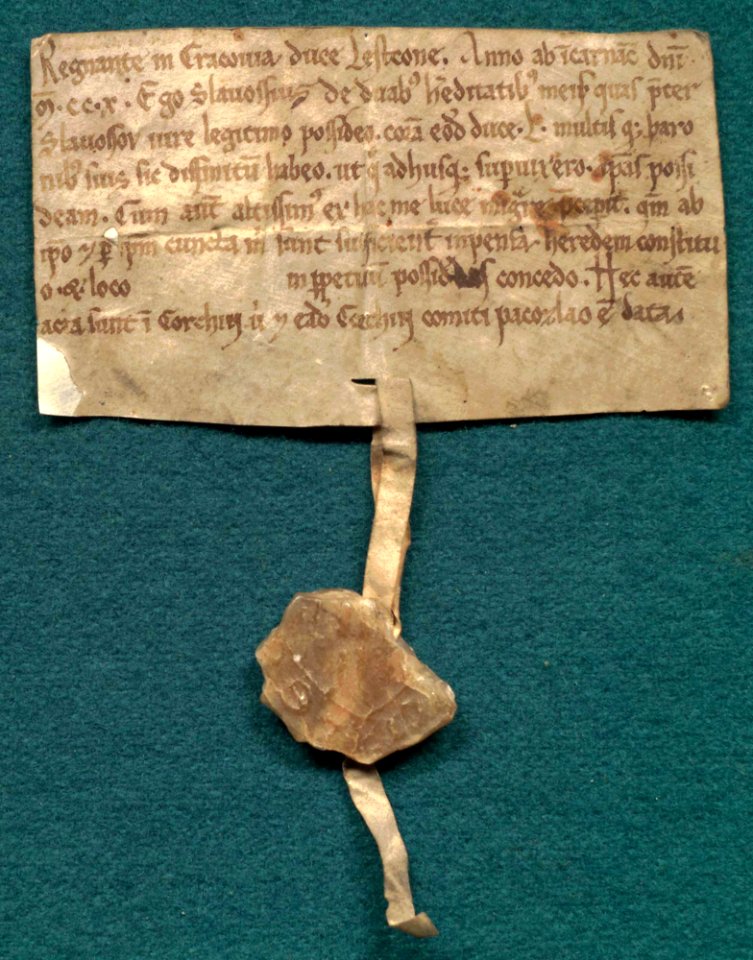 Regnante in Cracouia duce Lestcone. Anno ab ĩcarnac̃ dñi
m̃.c c.x. Ego Slauossius de duabꝰ h̃editatibꝰ meis quas p̃ter
Slauossov iure legitimo possideo. corã eod̃ duce. L. multisq; baro
nibꝰ suis sic diffinitũ habeo. ut q̃adhusq; supuixero. ip̃as possi
deam. Cum aut̃ altissimꝰ ex hac me luce mig̃re p̃cepit. qm̃ ab
ip̃o ⁊ ꝑ ip̃m cuncta m̃ sunt sufficient̃ inpensa heredem constitu
o. loco in ꝑpetuũ concedo. Hec autẽ
acta sunt ĩ Corchin ⁊ eãd comiti pacozlao ẽ data.